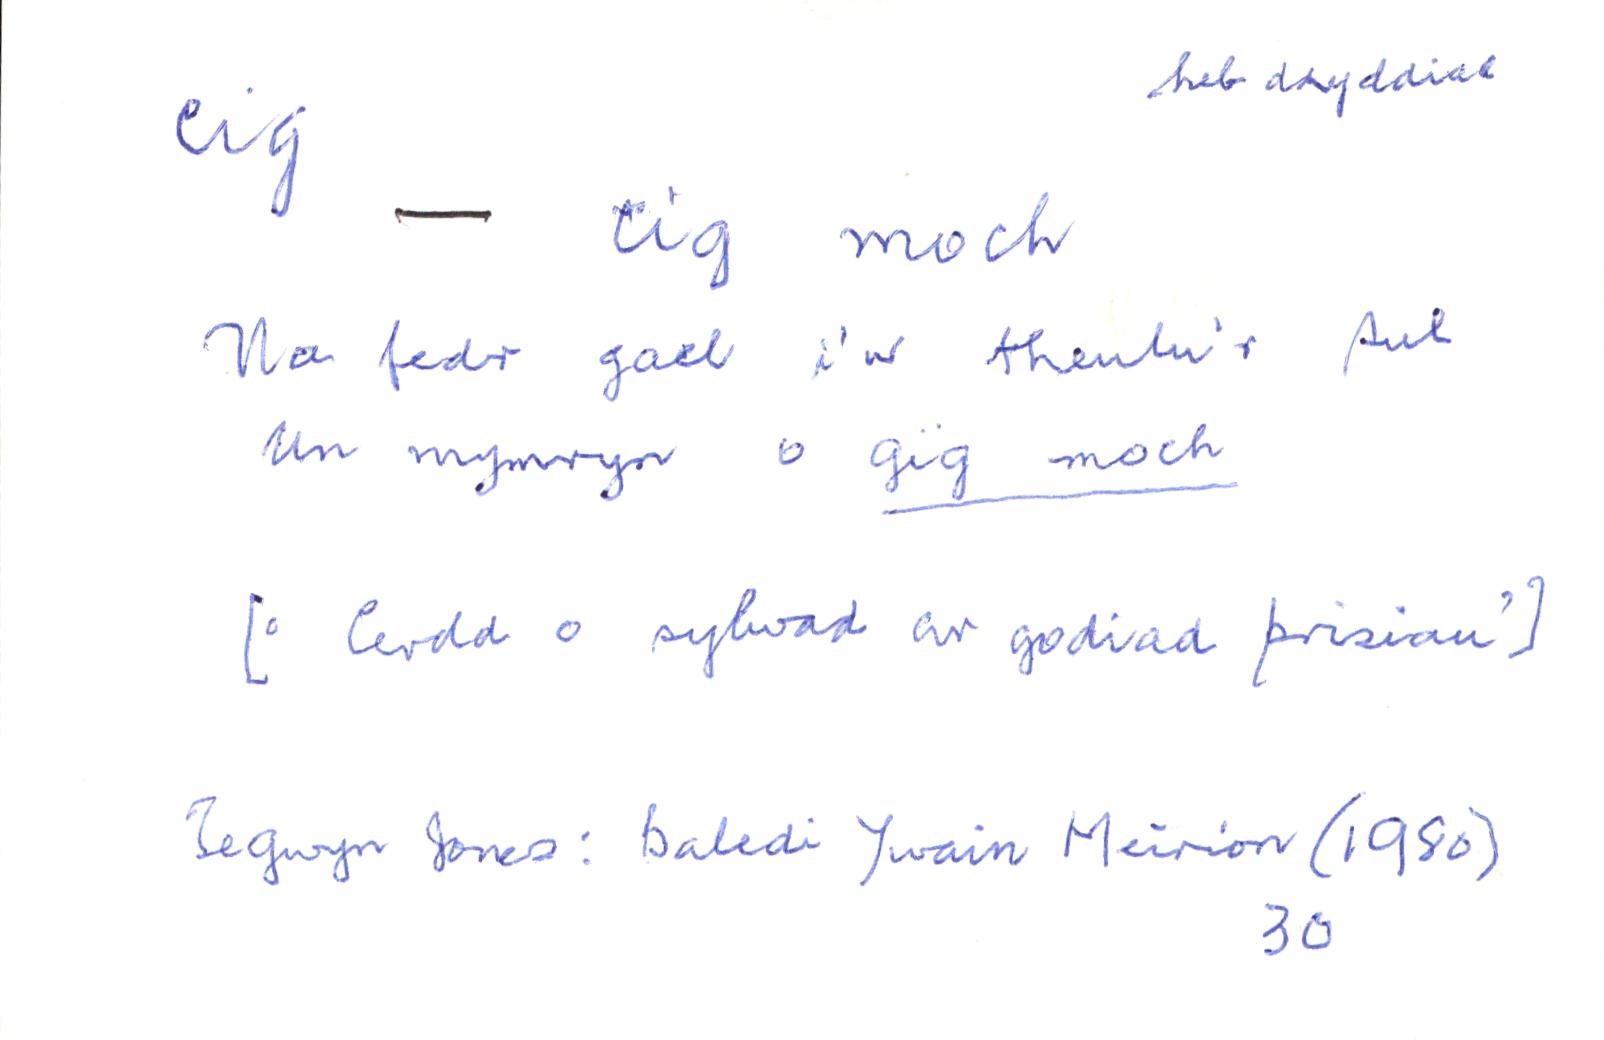 heb dhyddiad
cig
— cig moch
Na fedr gael i'w theulu'r Sul
Un mymryn o gig moch
[‘Cerdd o sylwad ar godiad prisiau’]
Tegwyn Jones: Baledi Ywain Meirion (1980)
30